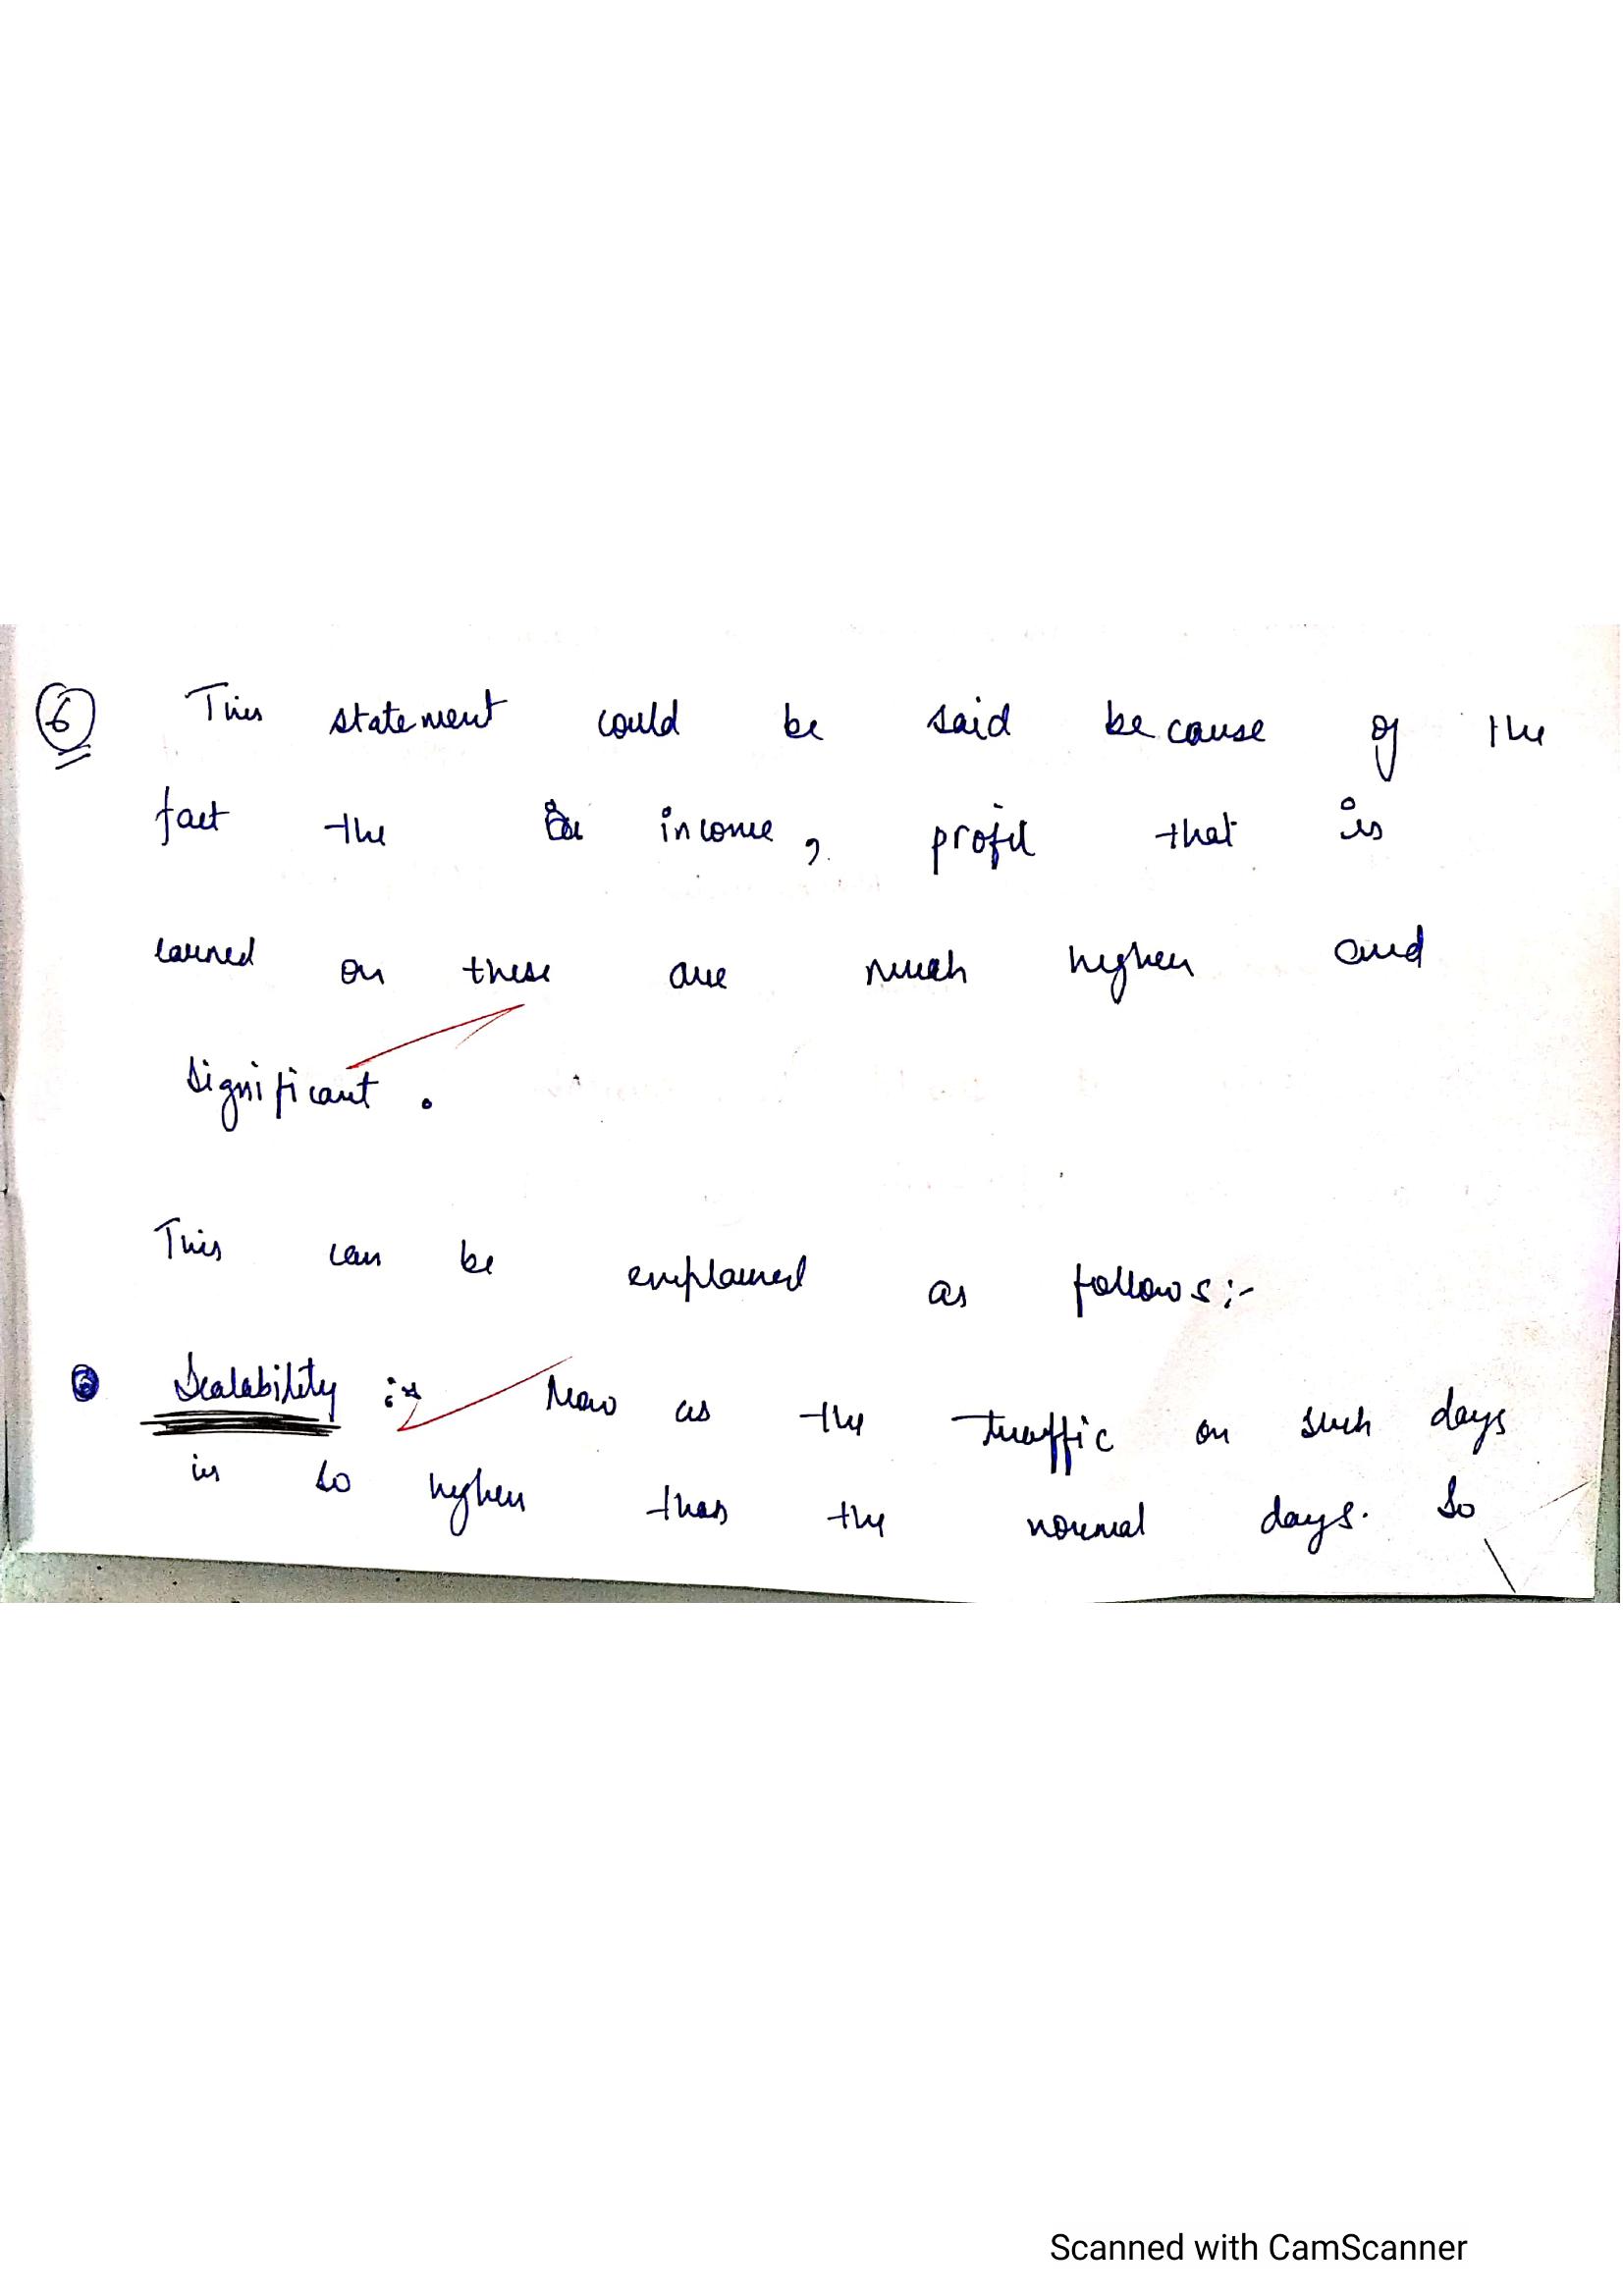 6 This statement could be said because of the
fact the income, profit that is
earned on these are much higher and
significant.
This can be explained as follows:-
Scalability :- Now as the traffic on such days
is so higher than the normal days. So
Scanned with CamScanner